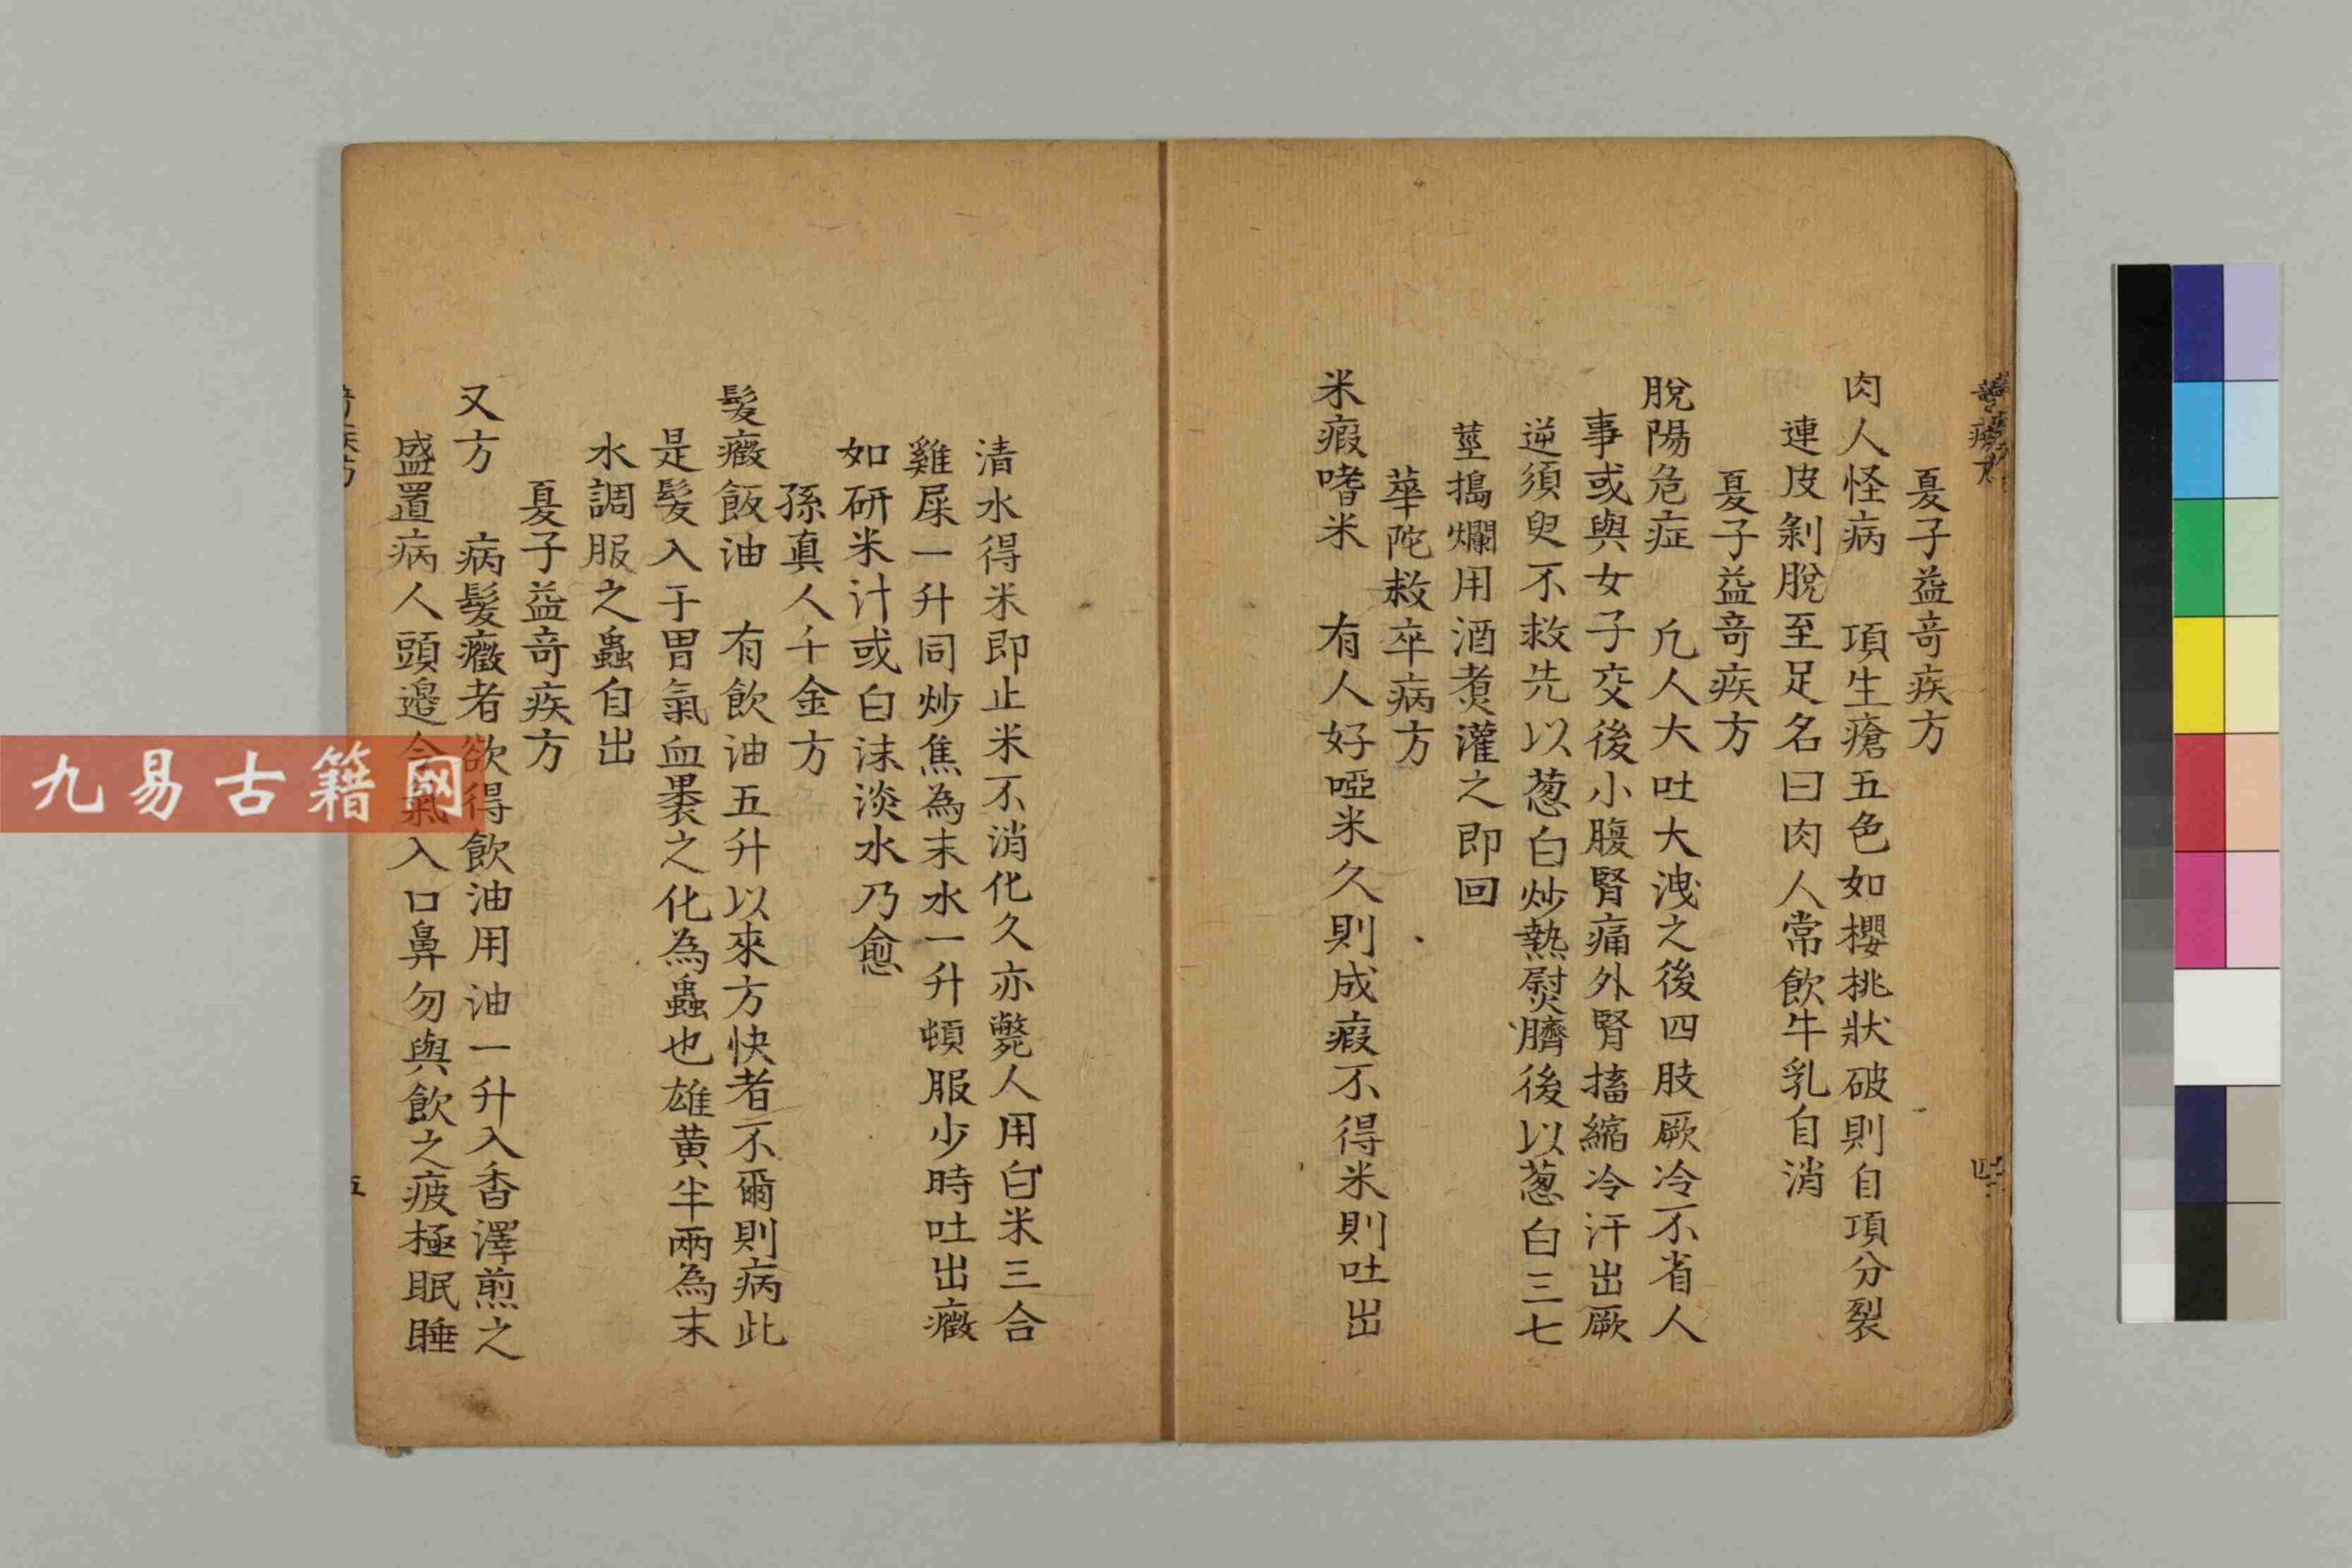 夏子益奇疾方
肉人怪病　項生瘡五色如櫻挑狀破則自項分裂
連皮剝脫至足名曰肉人常飲牛乳自消
夏子益奇疾方
脫陽危症　凢人大吐大洩之後四肢厥冷不省人
事或與女子交後小腹腎痛外腎搐縮冷汗出厥
逆須臾不救先以葱白炒熱熨臍後以葱白三七
莖搗爛用酒煑灌之即回
華陀救卒病方
米瘕嗜米　有人好啞米久則成瘕不得米則吐出
清水得米即止米不消化久亦斃人用白米三合
雞屎一升同炒焦為末水一升頓服少時吐出癥
如研米汁或白沫淡水乃愈
孫真人千金方
髮癥飯油　有飲油五升以來方快者不爾則病此
是髮入于胃氣血裹之化為蟲也雄黄半兩為末
水調服之蟲自出
夏子益奇疾方
又方　病髮癥者欲得飲油用油一升入香澤煎之
盛置病人頭邉令氣入口鼻勿與飲之疲極眠睡
五
九易古籍网